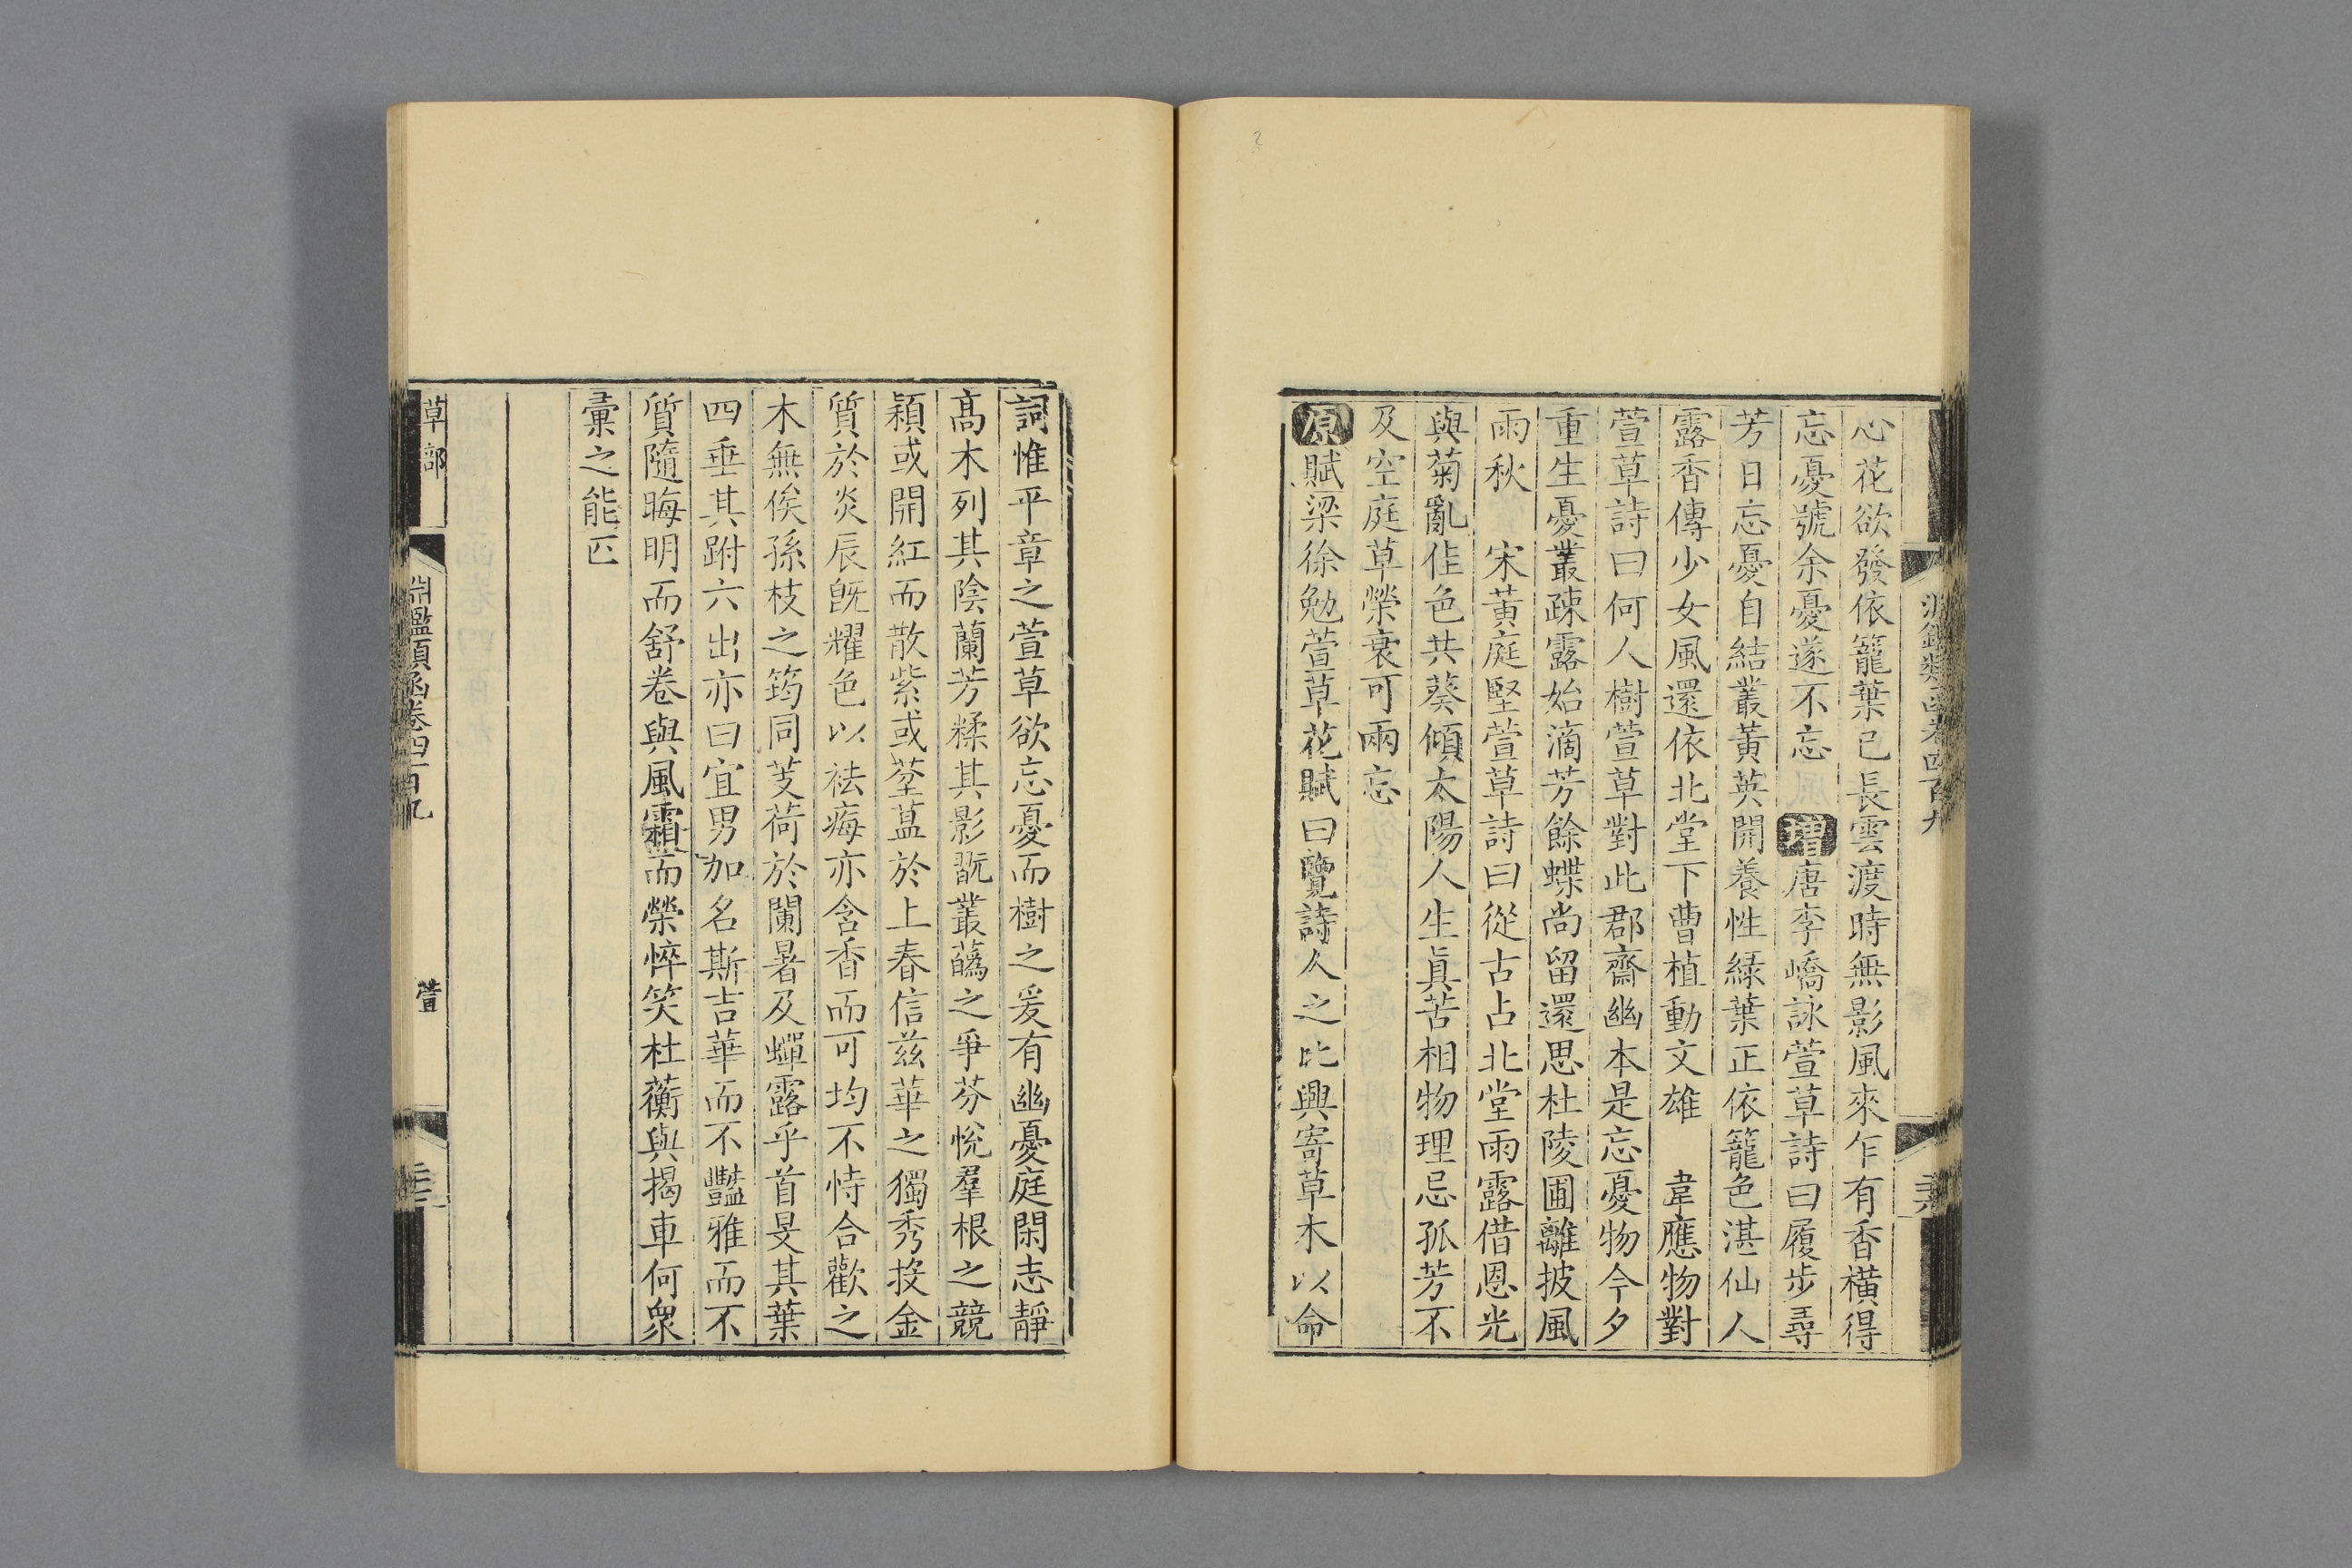 心花欲發依籠葉已長雲渡時無影風來乍有香橫得
忘憂號余憂遂不忘 增唐李嶠詠萱草詩曰履步尋
芳日忘憂自結叢黃英開養性綠葉正依籠色湛仙人
露香傳少女風還依北堂下曹植動文雄 韋應物對
萱草詩曰何人樹萱草對此郡齋幽本是忘憂物今夕
重生憂叢疎露始滴芳餘蝶尚留還思杜陵圃離披風
雨秋 宋黃庭堅萱草詩曰從古占北堂雨露借恩光
與菊亂佳色共葵傾太陽人生真苦相物理忌孤芳不
及空庭草榮衰可兩忘
原賦梁徐勉萱草花賦曰覽詩人之比興寄草木以命
詞惟平章之萱草欲忘憂而樹之爰有幽憂庭閑志靜
高木列其陰蘭芳糅其影既叢蘤之爭芬悅羣根之競
穎或開紅而散紫或莖葐於上春信兹華之獨秀挍金
質於炎辰既耀色以祛痗亦含香而可均不恃合歡之
木無俟孫枝之筠同芰荷於闌暑及蟬露乎首旻其葉
四垂其跗六出亦曰宜男加名斯吉華而不豔雅而不
質隨晦明而舒卷與風霜而榮悴笑杜蘅與揭車何衆
彙之能匹
草部
淵鑑類函卷四百九
萱